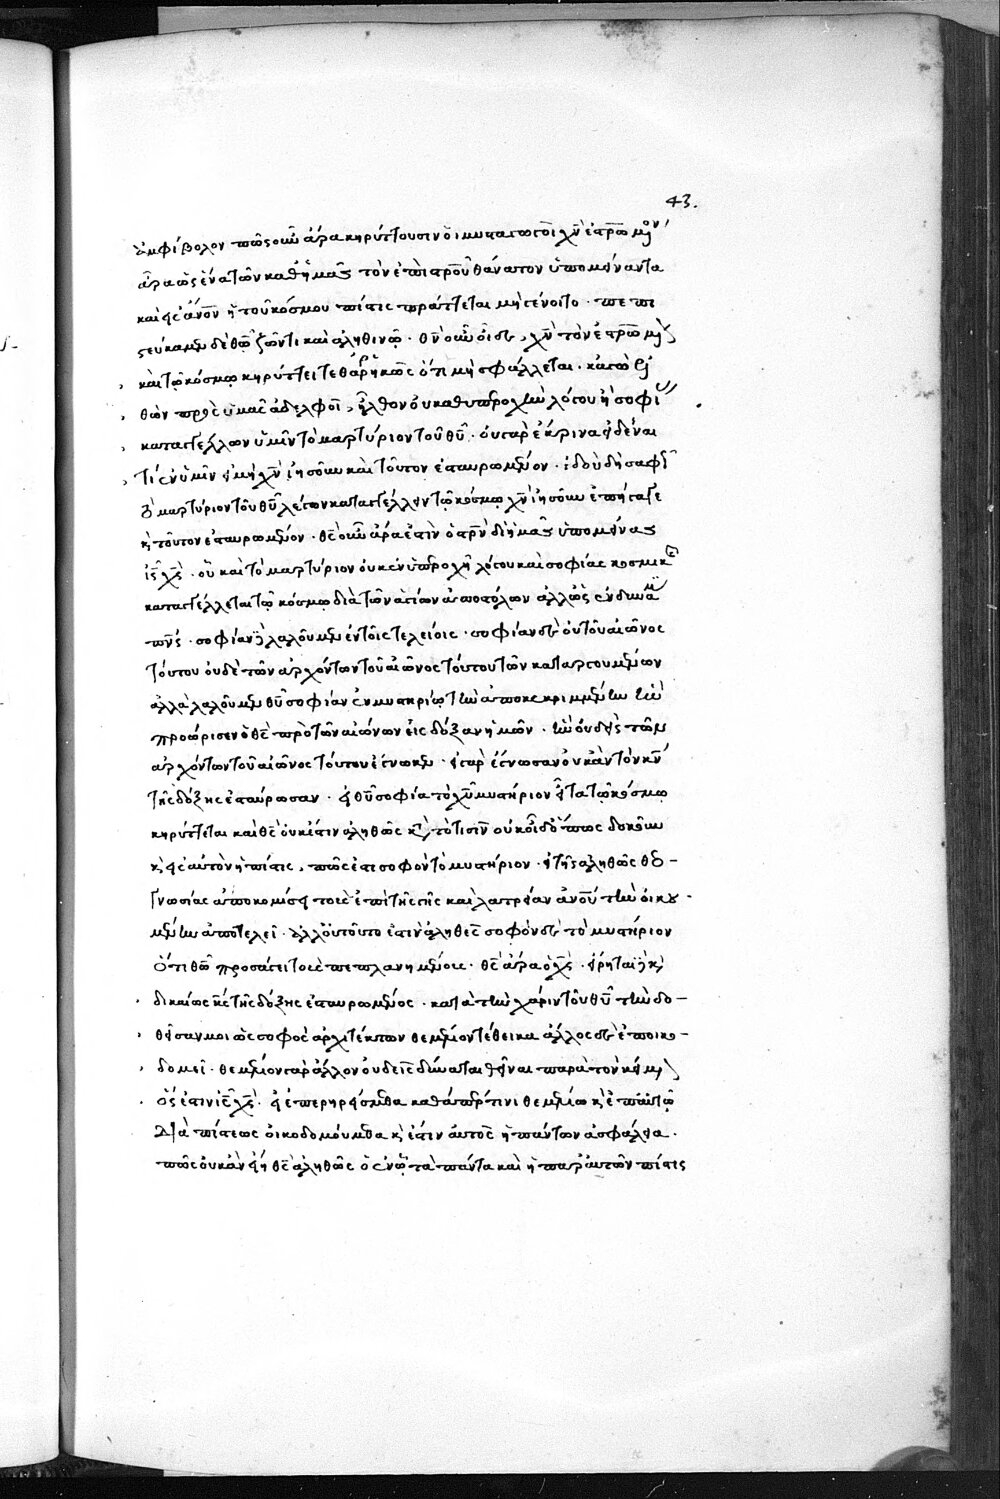 43.
ἀμφίβολον πῶς οὖν ἄρα κηρύττουσιν οἱ μυσταγωγοὶ χν ἐσταυρωμένον
ἄρα ὡς ἕνα τῶν καθ' ἡμᾶς τὸν ἐπὶ σταυροῦ θάνατον ὑπομείναντα
καὶ εἰς ἄνον ἡ τοῦ κόσμου πίστις πράττεται μὴ γένοιτο · πεπι
στεύκαμεν δὲ θω ζῶντι καὶ ἀληθινῷ · θν οὖν οἶδε, χν τὸν ἐσταυρωμένον
καὶ τῷ κόσμῳ κηρύττει τεθαρρηκὼς ὅτι μὴ σφάλλεται · κἀγὼ ἐλ
θὼν πρὸς ὑμᾶς ἀδελφοὶ, ἦλθον οὐ καθ' ὑπεροχὴν λόγου ἢ σοφίας
καταγγέλλων ὑμῖν τὸ μαρτύριον τοῦ θυ · οὐ γὰρ ἔκρινα εἰδέναι
τι ἐν ὑμῖν εἰ μὴ χν ἰησοῦν καὶ τοῦτον ἐσταυρωμένον · ἰδοὺ δὴ σαφῶς
μαρτύριον τοῦ θυ λέγων καταγγέλλειν τῷ κόσμῳ χν ἰησοῦν ἐπήγαγε
κ τοῦτον ἐσταυρωμένον · θς οὖν ἄρα ἐστὶν ὁ στρν δι' ἡμᾶς ὑπομείνας
ις χς · οὗ καὶ τὸ μαρτύριον οὐκ ἐν ὑπεροχῇ λόγου καὶ σοφίας κοσμικῆς
καταγγέλλεται τῷ κόσμῳ διὰ τῶν ἁγίων ἀποστόλων ἀλλ' ὡς ἐν δυνάμει
πνς · σοφίαν λαλοῦμεν ἐν τοῖς τελείοις · σοφίαν δὲ οὐ τοῦ αἰῶνος
τούτου οὐδὲ τῶν ἀρχόντων τοῦ αἰῶνος τούτου τῶν καταργουμένων
ἀλλὰ λαλοῦμεν θυ σοφίαν ἐν μυστηρίῳ τὴν ἀποκεκριμμένην ἣν
προώρισεν ὁ θς πρὸ τῶν αἰώνων εἰς δόξαν ἡμῶν · ἣν οὐδεὶς τῶν
ἀρχόντων τοῦ αἰῶνος τούτου ἔγνωκεν · εἰ γὰρ ἔγνωσαν οὐκ ἂν τὸν κν
τῆς δόξης ἐσταύρωσαν · εἰ θυ σοφία τὸ χυ μυστήριον εἶτα τῷ κόσμῳ
κηρύττεται καὶ θς οὐκ ἔστιν ἀληθῶς κατὰ τὸ τισὶν οὐκ οἶδ' ὅπως δοκοῦν
κ εἰς αὐτὸν ἡ πίστις, πῶς ἔτι σοφὸν τὸ μυστήριον · εἰ τῆς ἀληθῶς θεο-
γνωσίας ἀποκομίσει τοὺς ἐπὶ τῆς γῆς καὶ λατρείαν ἀνου τὴν οἰκου-
μένην ἀποτελεῖ · ἀλλ' οὐ τοῦτο ἐστὶν ἀληθές σοφὸν δὲ τὸ μυστήριον
ὅτι θω προσάγει τοὺς πεπλανημένους · θς ἄρα ὁ χς · εἴρηται κ
δικαίως κς τῆς δόξης ἐσταυρωμένος · κατὰ τὴν χάριν τοῦ θυ τὴν δο-
θεῖσαν μοι ὡς σοφὸς ἀρχιτέκτων θεμέλιον τέθεικα ἄλλος δὲ ἐποικο-
δομεῖ · θεμέλιον γὰρ ἄλλον οὐδεὶς δύναται θεῖναι παρὰ τὸν κείμενον
ὅς ἐστιν ις χς · εἰ ἐπερηρείσμεθα καθάπερ τινὶ θεμελίῳ κ ἐπ' αὐτῷ
διὰ πίστεως οἰκοδομούμεθα κ ἔστιν αὐτὸς ἡ πάντων ἀσφάλεια ·
πῶς οὐκ ἂν εἴη θς ἀληθῶς ὁ ἐν ᾧ τὰ πάντα καὶ ἡ παρ' αὐτῶν πίστις